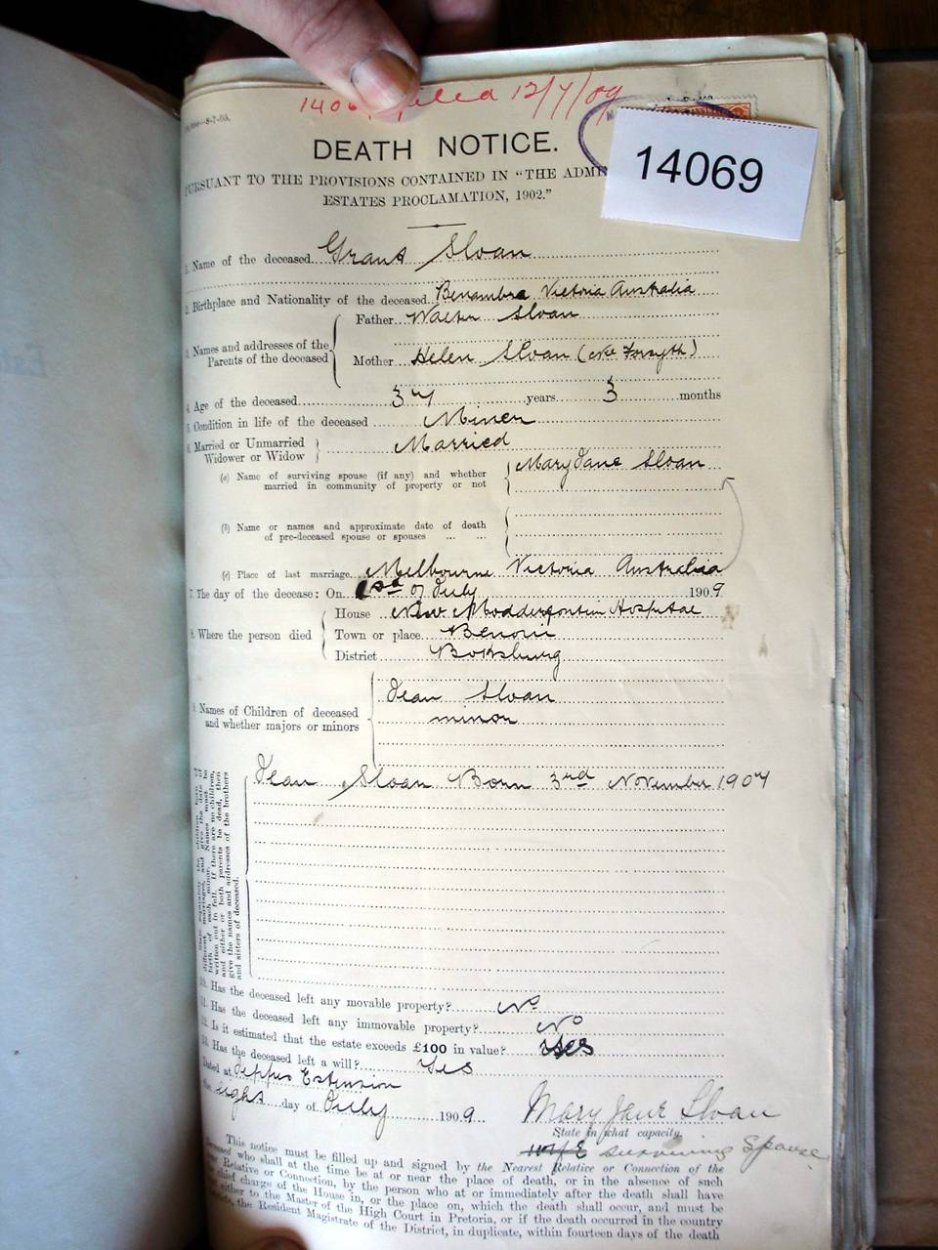 1406 filed 12/7/09
8-7-05.
14069
DEATH NOTICE.
PURSUANT TO THE PROVISIONS CONTAINED IN "THE ADMI
ESTATES PROCLAMATION, 1902."
1. Name of the deceased Grant Sloan
2. Birthplace and Nationality of the deceased Benambra Victoria Australia
3. Names and addresses of the Parents of the deceased
Father Walter Sloan
Mother Helen Sloan (née Forsyth)
4. Age of the deceased 37 years 3 months
5. Condition in life of the deceased Miner
6. Married or Unmarried Widower or Widow Married
(a) Name of surviving spouse (if any) and whether married in community of property or not Mary Jane Sloan
(b) Name or names and approximate date of death of pre-deceased spouse or spouses
(c) Place of last marriage Melbourne Victoria Australia
7. The day of the decease: On 1st of July 1909
8. Where the person died
House New Modderfontein Hospital
Town or place Benoni
District Boksburg
9. Names of Children of deceased and whether majors or minors
Jean Sloan
minor
Jean Sloan Born 3rd November 1907
written out in full. If there are no children,
and either or both parents be dead, then
give the names and addresses of the brothers
and sisters of deceased.
10. Has the deceased left any movable property? No
11. Has the deceased left any immovable property? No
12. Is it estimated that the estate exceeds £100 in value? Yes
13. Has the deceased left a will? Yes
Dated at Jeppes Extension
the eight day of July 1909
Mary Jane Sloan
State in what capacity
wife surviving Spouse
This notice must be filled up and signed by the Nearest Relative or Connection of the
deceased who shall at the time be at or near the place of death, or in the absence of such
Relative or Connection, by the person who at or immediately after the death shall have
chief charge of the House in, or the place on, which the death shall occur, and must be
either to the Master of the High Court in Pretoria, or if the death occurred in the country
the Resident Magistrate of the District, in duplicate, within fourteen days of the death